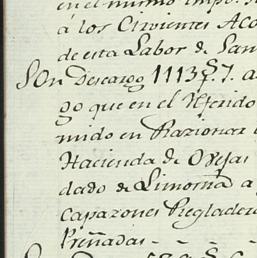 en el mismo Impo
á los Sirvientes Aco
de esta Labor de San
Son Descargo 1113 $ 7. a
go que en el Referido
mido en Razionar
Hacienda de Ovejas
dado de Limosna a
capazones Regladera
Preñadas - - -